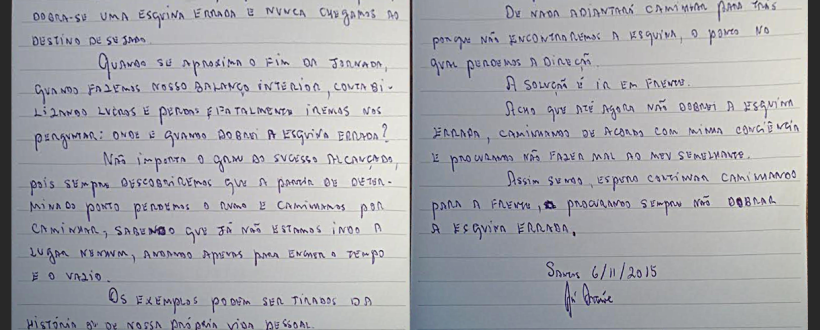 DOBRA-SE UMA ESQUINA ERRADA E NUNCA CHEGAMOS AO
DESTINO DESEJADO.
QUANDO SE APROXIMA O FIM DA JORNADA,
QUANDO FAZEMOS NOSSO BALANÇO INTERIOR, CONTABI-
LIZANDO LUCROS E PERDAS FATALMENTE IREMOS NOS
PERGUNTAR: ONDE E QUANDO DOBREI A ESQUINA ERRADA?
NÃO IMPORTA O GRAU DO SUCESSO ALCANÇADO,
POIS SEMPRE DESCOBRIREMOS QUE A PARTIR DE DETER-
MINADO PONTO PERDEMOS O RUMO E CAMINHAMOS POR
CAMINHAR, SABENDO QUE JÁ NÃO ESTAMOS INDO A
LUGAR NENHUM, ANDANDO APENAS PARA ENCHER O TEMPO
E O VAZIO.
OS EXEMPLOS PODEM SER TIRADOS DA
HISTÓRIA OU DE NOSSA PRÓPRIA VIDA PESSOAL.
DE NADA ADIANTARÁ CAMINHAR PARA TRÁS
PORQUE NÃO ENCONTRAREMOS A ESQUINA, O PONTO NO
QUAL PERDEMOS A DIREÇÃO.
A SOLUÇÃO É IR EM FRENTE.
ACHO QUE ATÉ AGORA NÃO DOBREI A ESQUINA
ERRADA, CAMINHANDO DE ACORDO COM MINHA CONCIÊNCIA
E PROCURANDO NÃO FAZER MAL AO MEU SEMELHANTE.
ASSIM SENDO, ESPERO CONTINUAR CAMINHANDO
PARA A FRENTE, PROCURANDO SEMPRE NÃO DOBRAR
A ESQUINA ERRADA.
SANTOS 6/11/2015